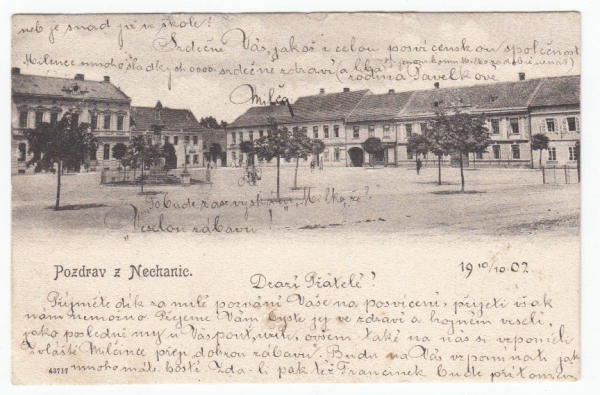 neb je snad již ve škole?
Srdečně Vás, jakož i celou posvícenskou společnost
Milence mnoho sladkých 0000. srdečné zdraví (a líbá
rodina Pavelkova
Milča
To bude zase výskání „Milko, že?
„Veselou zábavu"!
Pozdrav z Nechanic.
19 10/10 02
Drazí Přátelé!
Přijměte dík za milé pozvání Vaše na posvícení, přijeti však
nám nemožno. Přejeme Vám byste jej ve zdraví a hojném veselí,
jako poslední my u Vás pout, užili, ovšem také na nás si vzpoměli
Zvláště Milčince přeji dobrou zábavu. Budu na Vás vzpomínati jak
mnoho máte hostí Zda-li pak též Francinek bude přítomen
43737